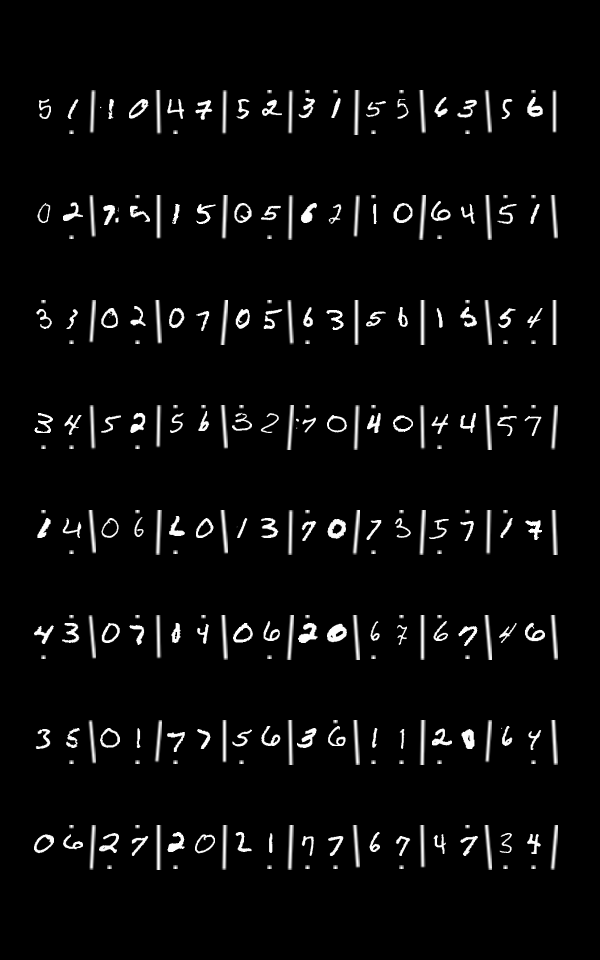 5 1 | 1 0 | 4 7 | 5 2 | 3 1 | 5 5 | 6 3 | 5 6 |
0 2 | 7 5 | 1 5 | 0 5 | 6 2 | 1 0 | 6 4 | 5 1 |
3 3 | 0 2 | 0 7 | 0 5 | 6 3 | 5 6 | 1 5 | 5 4 |
3 4 | 5 2 | 5 6 | 3 2 | 7 0 | 4 0 | 4 4 | 5 7 |
1 4 | 0 6 | 2 0 | 1 3 | 7 0 | 7 3 | 5 7 | 1 7 |
4 3 | 0 7 | 1 4 | 0 6 | 2 0 | 6 7 | 6 7 | 4 6 |
3 5 | 0 1 | 7 7 | 5 6 | 3 6 | 1 1 | 2 1 | 6 4 |
0 6 | 2 7 | 2 0 | 2 1 | 7 7 | 6 7 | 4 7 | 3 4 |